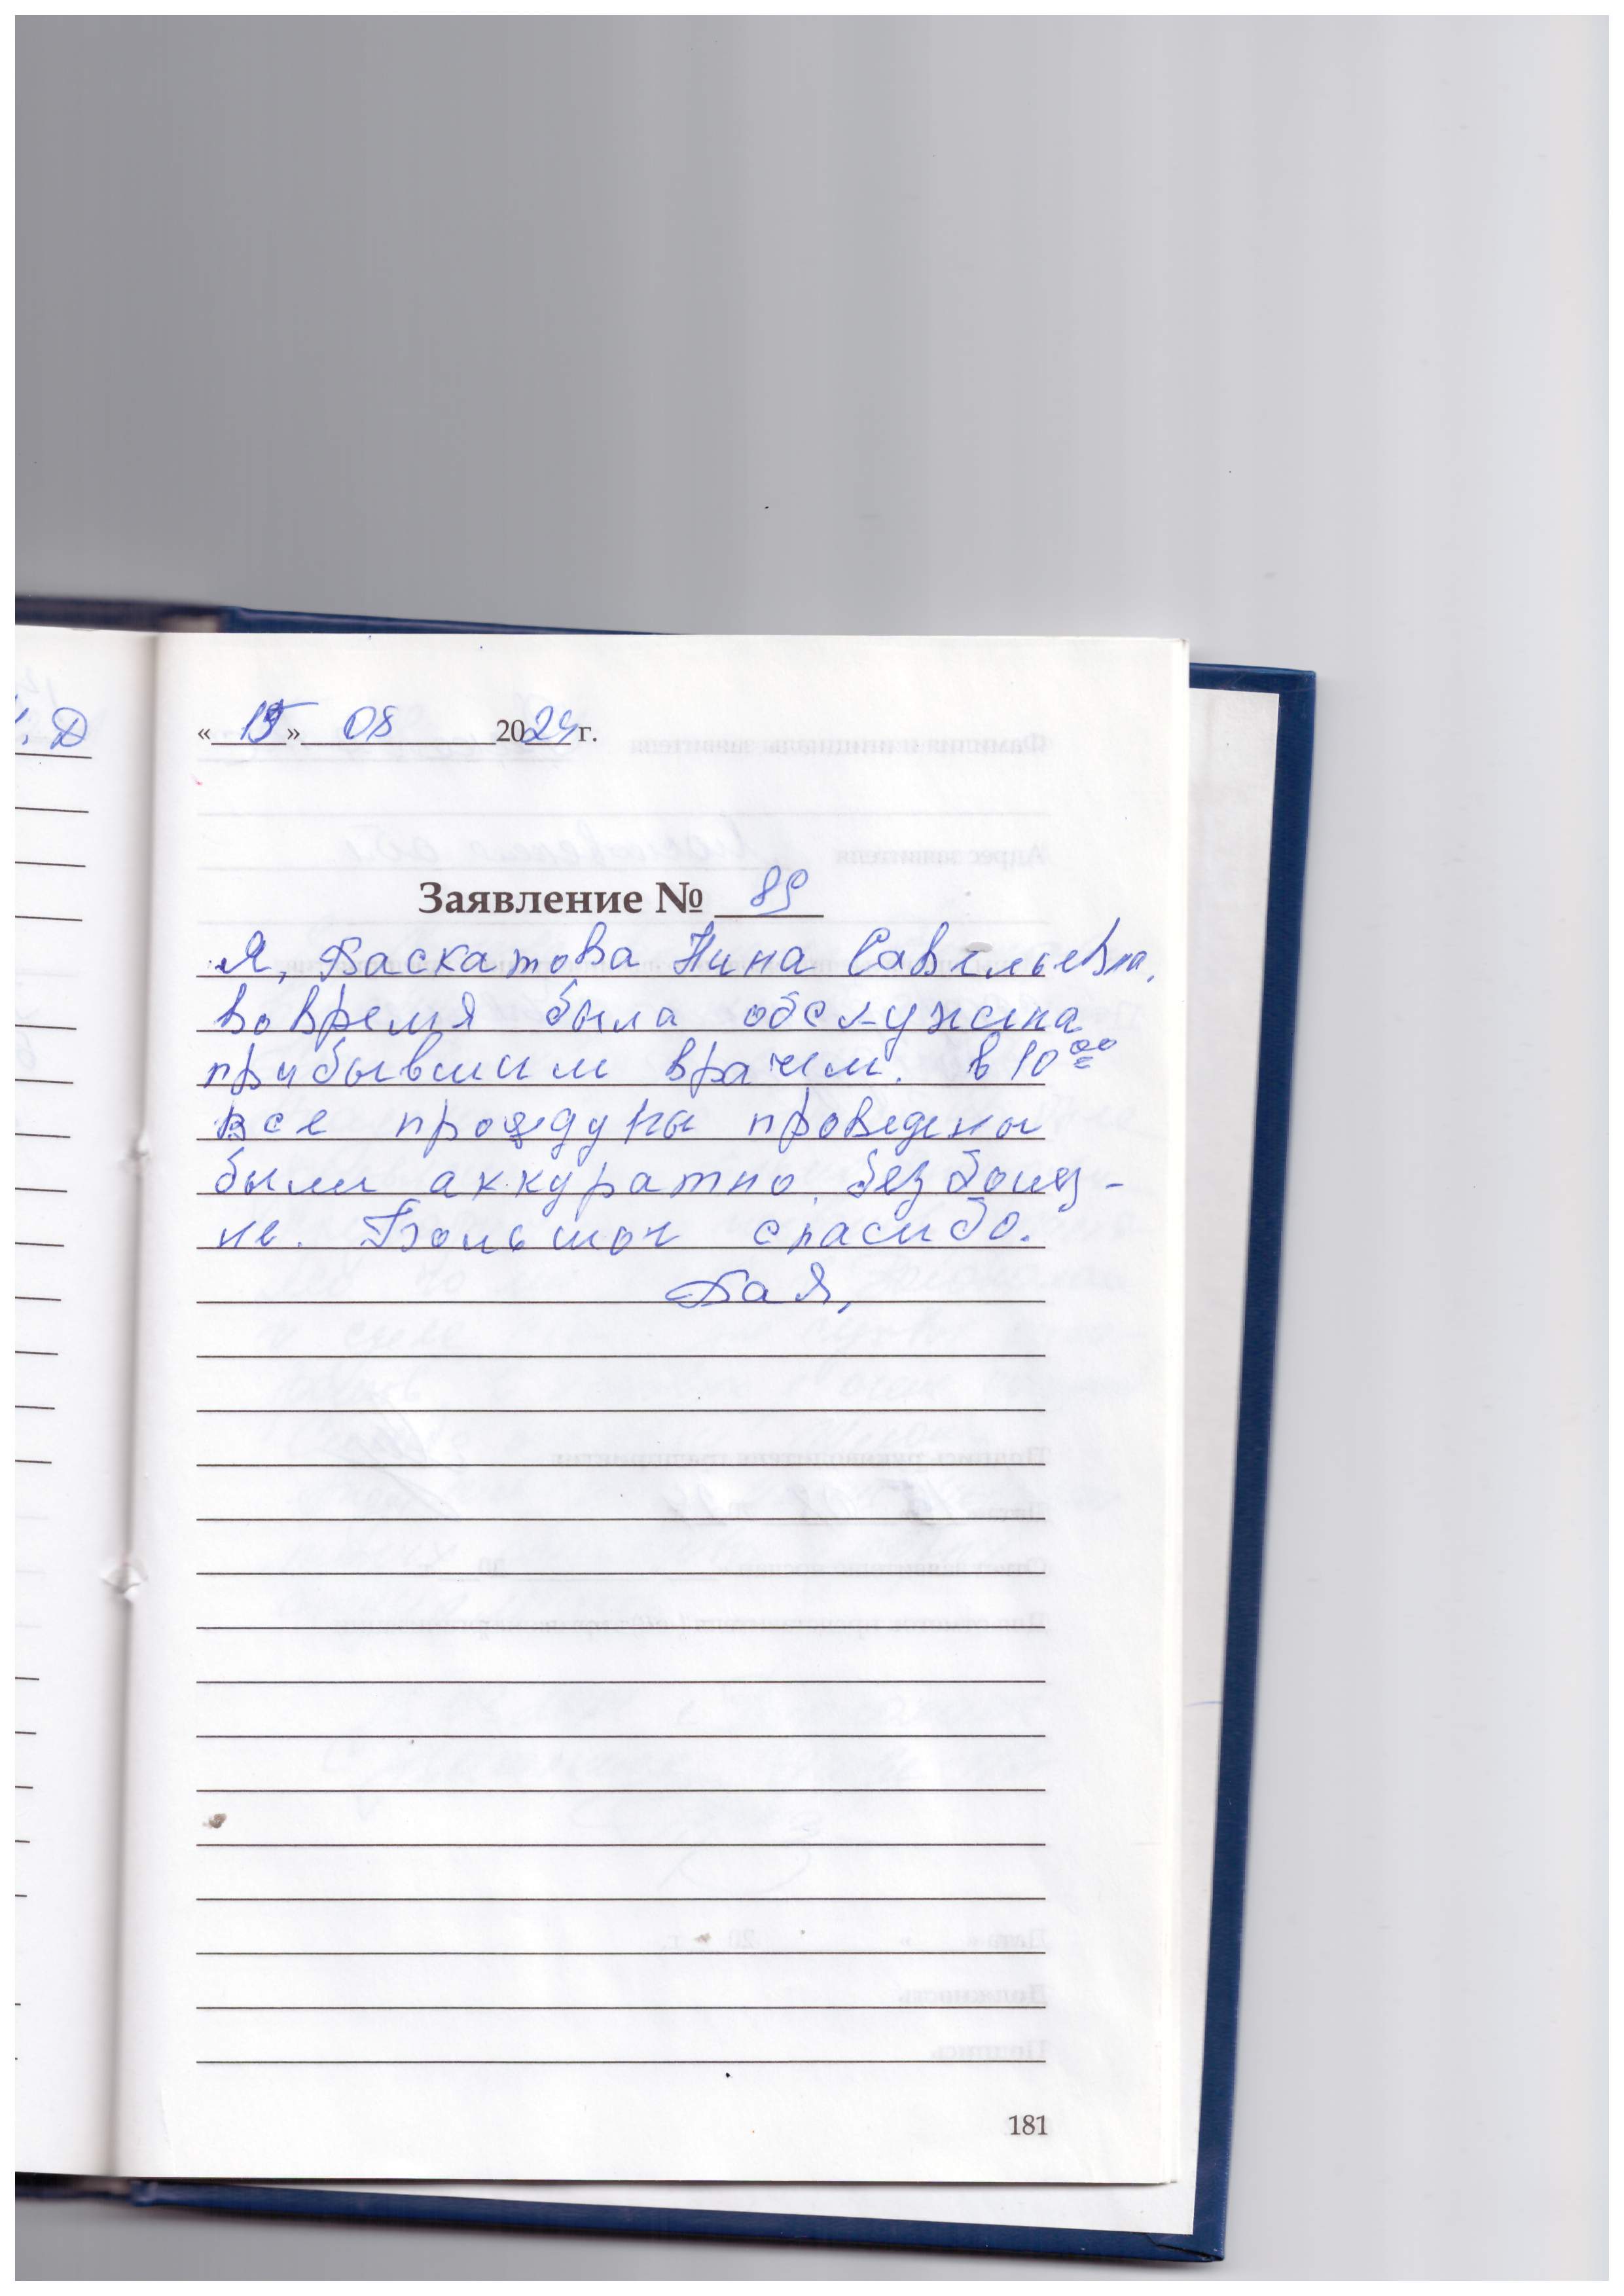 . Д
« 15 » 08 2024 г.
Заявление № 89
Я, Баскатова Нина Савельевна,
вовремя была обслужена
прибывшим врачем. в 10 00
все процедуры проведены
были аккуратно, без болез-
не. Большое спасибо.
181